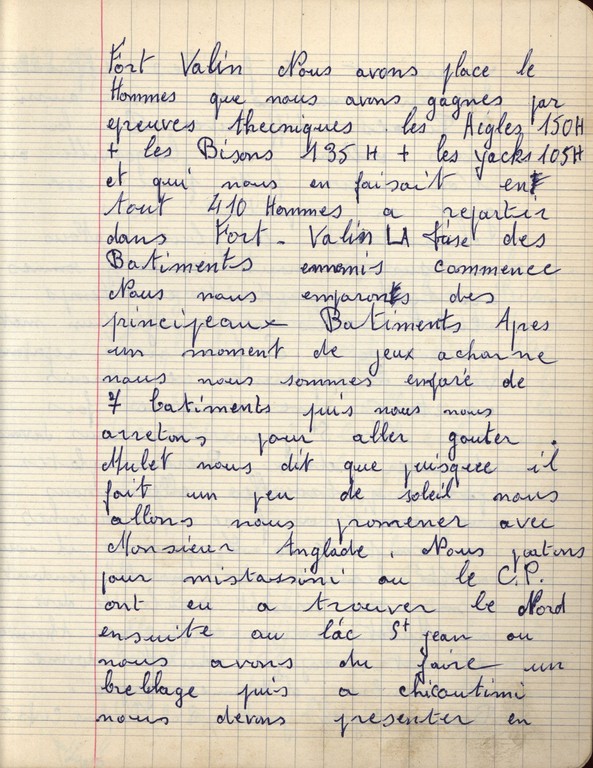 Fort Valin Nous avons place le
Hommes que nous avons gagnes par
epreuves thecniques. les Aigles 150H
+ les Bisons 135H + les yacks 105H
et qui nous en faisait en
tout 410 Hommes a repartir
dans Fort-Valin LA fase des
Batiments ennemis commence
Nous nous emparons des
principeaux Batiments Apres
un moment de jeux acharne
nous nous sommes emparé de
7 batiments puis nous nous
arretons pour aller gouter.
Mulet nous dit que puisque il
fait un peu de soleil nous
allons nous promener avec
Monsieur Anglade. Nous partons
pour mistassini ou le C.P.
ont eu a trouver le Nord
ensuite au lác St jean ou
nous avons du faire un
breblage puis a chicoutimi
nous devons presenter en